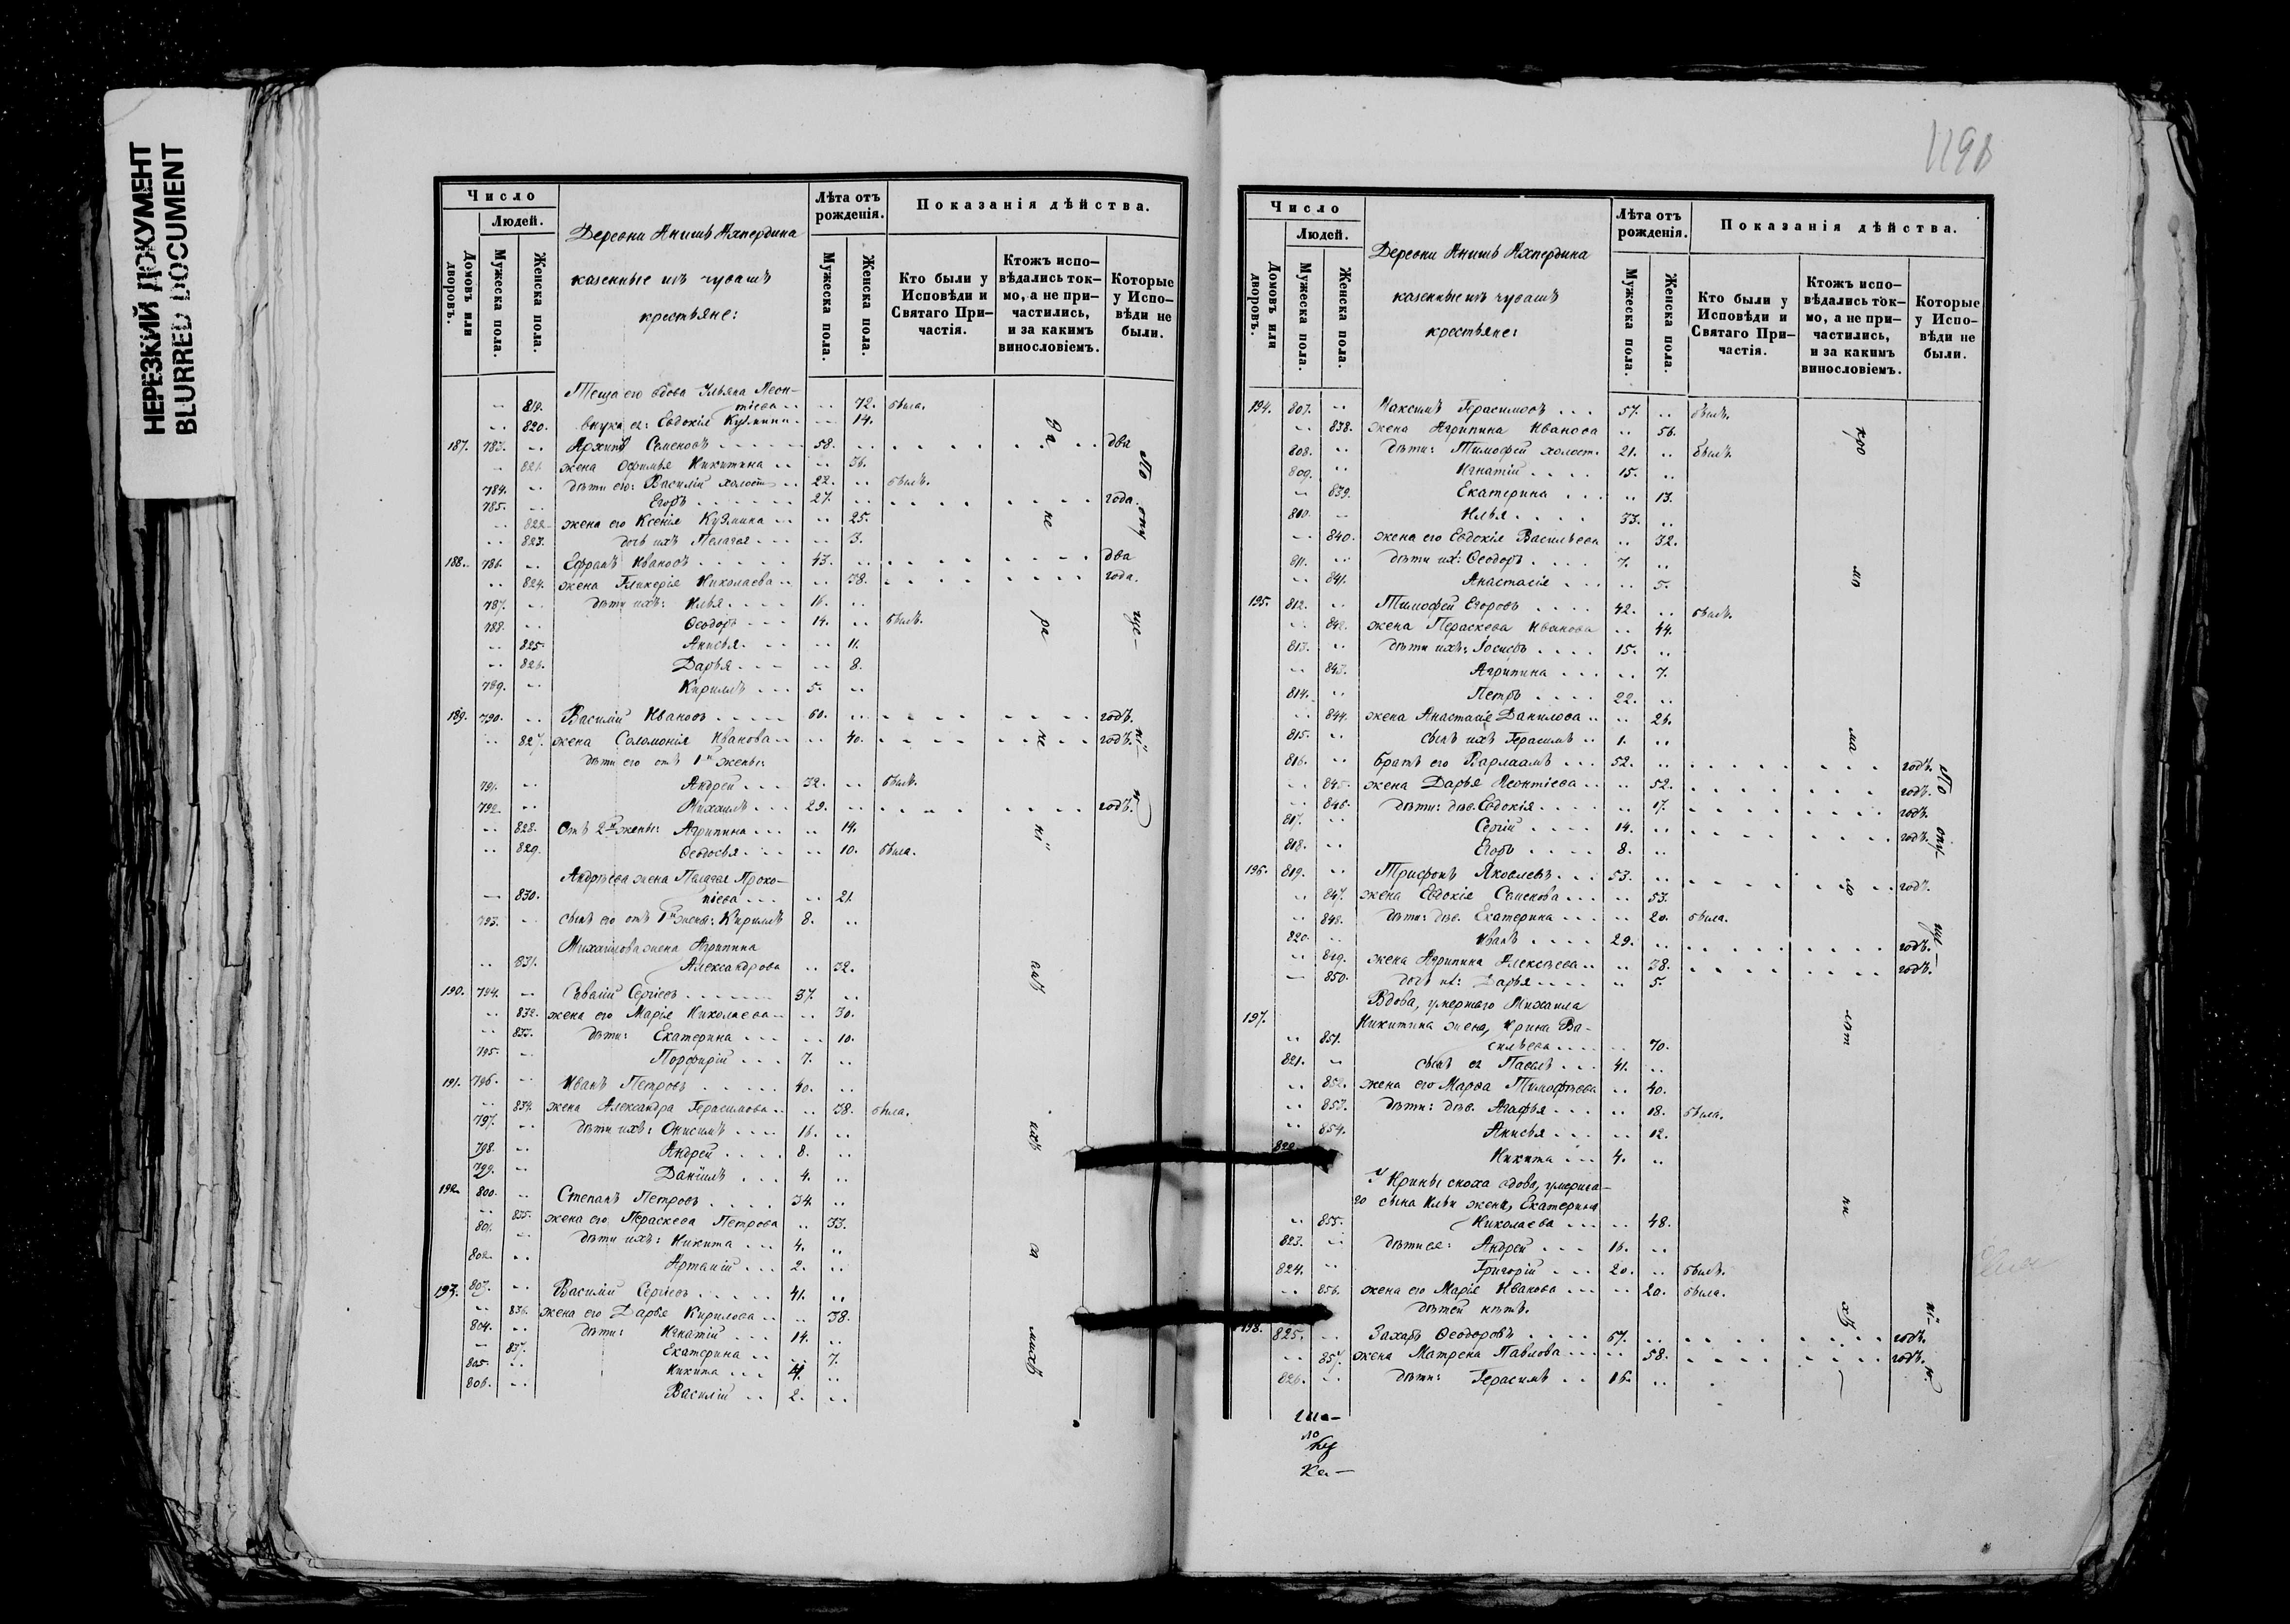 НЕРЕЗКИЙ ДОКУМЕНТ
BLURRED DOCUMENT
Число
Людей.
Домовъ или дворовъ.
Мужеска пола.
Женска пола.
Деревни Анишъ Ахпердина
казенные изъ чувашъ
крестьяне:
Лѣта отъ рожденія.
Мужеска пола.
Женска пола.
Показанія дѣйства.
Кто были у Исповѣди и Святаго Причастія.
Ктожъ исповѣдались токмо, а не причастились, и за какимъ винословіемъ.
Которые у Исповѣди не были.
Теща его вдова Ульяна Леон-
819. тіева 72. была.
820. внука ея: Евдокія Кузмина 14.
187. 783. Архипъ Семеновъ 58. два
821. жена Офимья Никитина 36.
784. дѣти его: Василій холост 22. былъ.
785. Егоръ 27. года.
822. жена его Ксенія Кузмина 25.
823. дочь ихъ Пелагея 3.
188. 786. Ефремъ Ивановъ 43. два
824. жена Гликерія Николаева 38. года.
787. дѣти ихъ: Илья 16.
788. Ѳеодоръ 14. былъ.
825. Анисья 11.
826. Дарья 8.
789. Кириллъ 5.
189. 790. Василій Ивановъ 60. годъ.
827. жена Соломонія Иванова 40. годъ.
дѣти его отъ 1й жены:
791. Андрей 32. былъ.
792. Михаилъ 29. годъ.
828. Отъ 2й жены: Агрипина 14.
829. Ѳеодосья 10. была.
Андреева жена Палагея Проко-
830. піева 21.
793. сынъ его отъ 1й жены: Кириллъ 8.
Михаилова жена Агрипина
831. Александрова 32.
190. 794. Сергіевъ 37.
832. жена его Марія Николаева 30.
833. дѣти: Екатерина 10.
795. Порфирій 7.
191. 796. Иванъ Петровъ 40.
834. жена Александра Герасимова 38. была.
797. дѣти ихъ: Онисимъ 16.
798. Андрей 8.
799. Даніилъ 4.
192. 800. Степанъ Петровъ 34.
835. жена его Параскева Петрова 33.
801. дѣти ихъ: Никита 4.
802. 2.
193. 803. Василій Сергіевъ 41.
836. жена его Дарья Кирилова 38.
804. дѣти: Игнатій 14.
837. Екатерина 7.
805. Никита 4.
806. Василій 2.
За
не
ра
не
ні
емъ
ихъ
По
опу
ще-
ні-
ю
1198
Число
Людей.
Домовъ или дворовъ.
Мужеска пола.
Женска пола.
Деревни Анишъ Ахпердина
казенные изъ чувашъ
крестьяне:
Лѣта отъ рожденія.
Мужеска пола.
Женска пола.
Показанія дѣйства.
Кто были у Исповѣди и Святаго Причастія.
Ктожъ исповѣдались токмо, а не причастились, и за какимъ винословіемъ.
Которые у Исповѣди не были.
194. 807. Максимъ Герасимовъ 57. былъ.
838. жена Агрипина Иванова 56.
808. дѣти: Тимофей холост. 21. былъ.
809. Игнатій 15.
839. Екатерина 13.
810. Илья 33.
840. жена его Евдокія Васильева 32.
811. дѣти их: Ѳеодоръ 7.
841. Анастасія 5.
195. 812. Тимофей Егоровъ 42. былъ.
842. жена Пераскева Иванова 44.
813. дѣти ихъ: Іосифъ 15.
843. Агрипина 7.
814. Петръ 22.
844. жена Анастасіе Данилова 26.
815. сынъ ихъ Герасимъ 1.
816. Братъ его Варлаамъ 52. годъ.
845. жена Дарья Леонтіева 52. годъ.
846. дѣти: дѣв. Евдокія 17. годъ.
817. Сергій 14. годъ.
818. Егоръ 8.
196. 819. Трифонъ Яковлевъ 53. годъ.
847. жена Евдокіе Семенова 53.
848. дѣти: дѣв. Екатерина 20. была.
820. Иванъ 29. годъ.
849. жена Агрипина Алексѣева 38. годъ.
850. дочь их: Дарья 5.
Вдова, умершаго Михаила
197. Никитина жена, Ирина Ва-
851. сильева 70.
821. сынъ ея Павелъ 41.
852. жена его Марѳа Тимофѣева 40.
853. дѣти: дѣв. Агафья 18. была.
854. Анисья 12.
822. Никита 4.
У Ирины сноха вдова, умерша-
го сына Ильи жена, Екатерина
855. Николаева 48.
823. дѣти ея: Андрей 16.
824. Григорій 20. былъ.
856. жена его Марія Иванова 20. была.
дѣтей нѣтъ.
198. 825. Захаръ Ѳеодоровъ 67. годъ.
857. жена Матрена Павлова 58. годъ.
826. дѣти: Герасимъ 16.
кро
мо
ма
ло
лѣт
ни
хъ
По
опу-
ще-
ні-
ю.